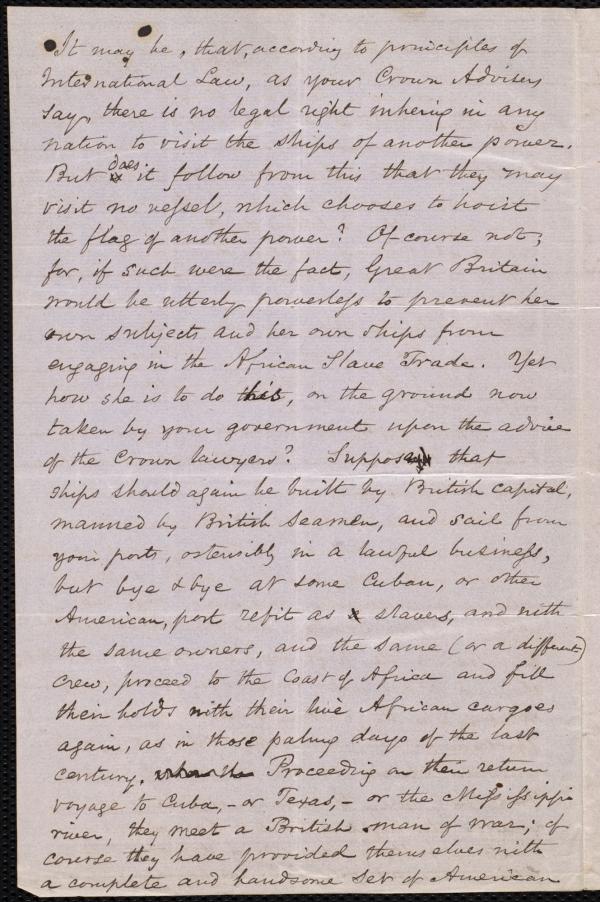 It may be, that, according to principles of
International Law, as your Crown Advisers
say, there is no legal right inhering in any
nation to visit the ships of another power.
But does it follow from this that they may
visit no vessel, which chooses to hoist
the flag of another power? Of course not;
for, if such were the fact, Great Britain
would be utterly powerless to prevent her
own subjects and her own ships from
engaging in the African Slave Trade. Yet
how she is to do this, on the ground now
taken by your government upon the advice
of the Crown lawyers? Suppose that
ships should again be built by British capital,
manned by British seamen, and sail from
your ports, ostensibly in a lawful business,
but bye & bye at some Cuban, or other
American, port refit as slavers, and with
the same owners, and the same (or a different)
crew, proceed to the Coast of Africa and fill
their holds with their live African cargoes
again, as in those palmy days of the last
century. Proceeding on their return
voyage to Cuba, - or Texas, - or the Mississippi
river, they meet a British man of war; of
course they have provided themselves with
a complete and handsome set of American